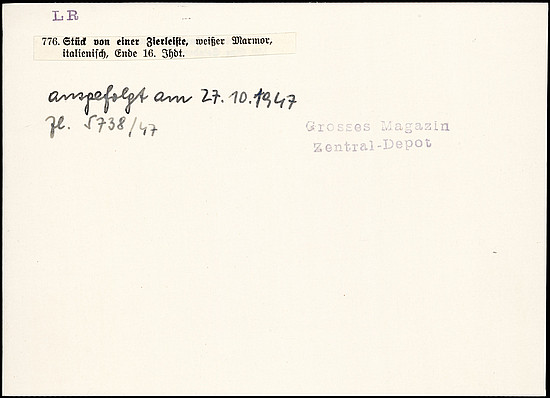 LR
776. Stück von einer Zierleiste, weißer Marmor,
italienisch, Ende 16. Jhdt.
ausgefolgt am 27.10.1947
Zl. 5738/47
Grosses Magazin
Zentral-Depot